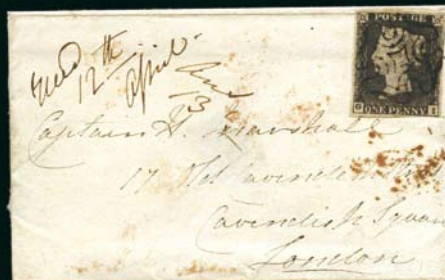 POSTAGE
ONE PENNY
12th
April
Captain H. Marshall
17 Old Cavendish
Cavendish Square
London